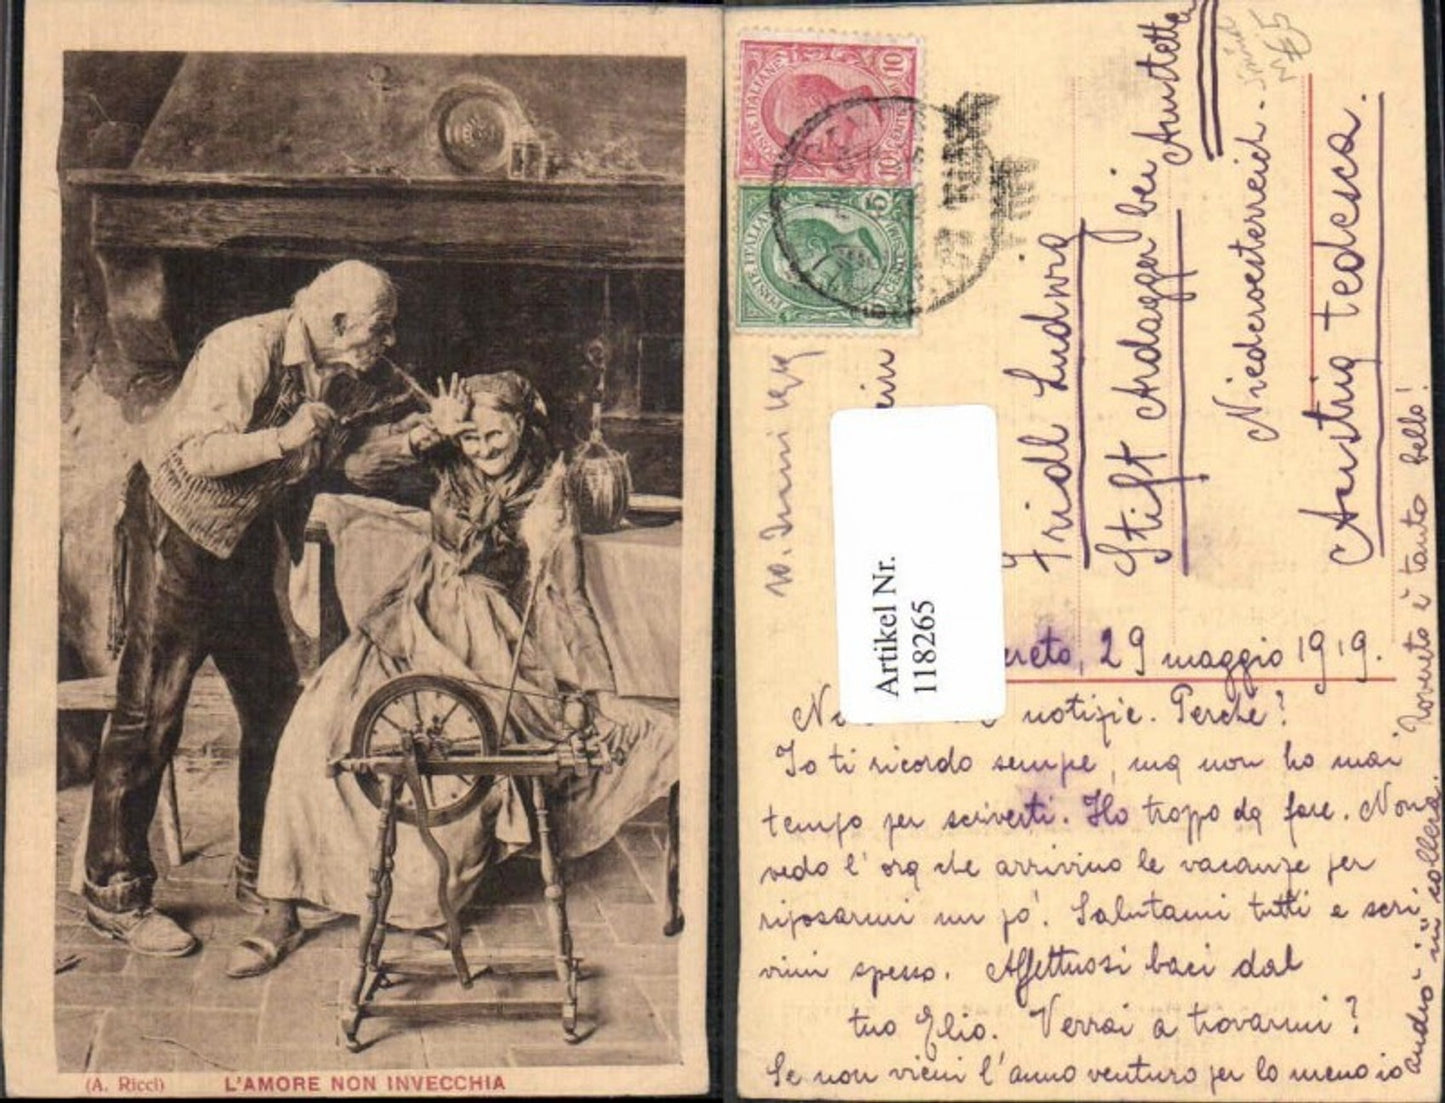 1881
(A. Ricci) L'AMORE NON INVECCHIA
POSTE ITALIANE
10
10
POSTE ITALIANE
5
Artikel Nr.
118265
Fridl Ludwig
Stift Ardagger bei Amstetten
Niederoesterreich.
Austria tedesca.
ereto, 29 maggio 1919.
notizie. Perchè?
Io ti ricordo sempre, ma non ho mai
tempo per scriverti. Ho troppo da fare. Non
vedo l'ora che arrivino le vacanze per
riposarmi un po'. Salutami tutti e scri
vimi spesso. Affettuosi baci dal
tuo Elio. Verrai a trovarmi?
Se non vieni l'anno venturo per lo meno io
andrò in collera.
Rovereto è tanto bello!